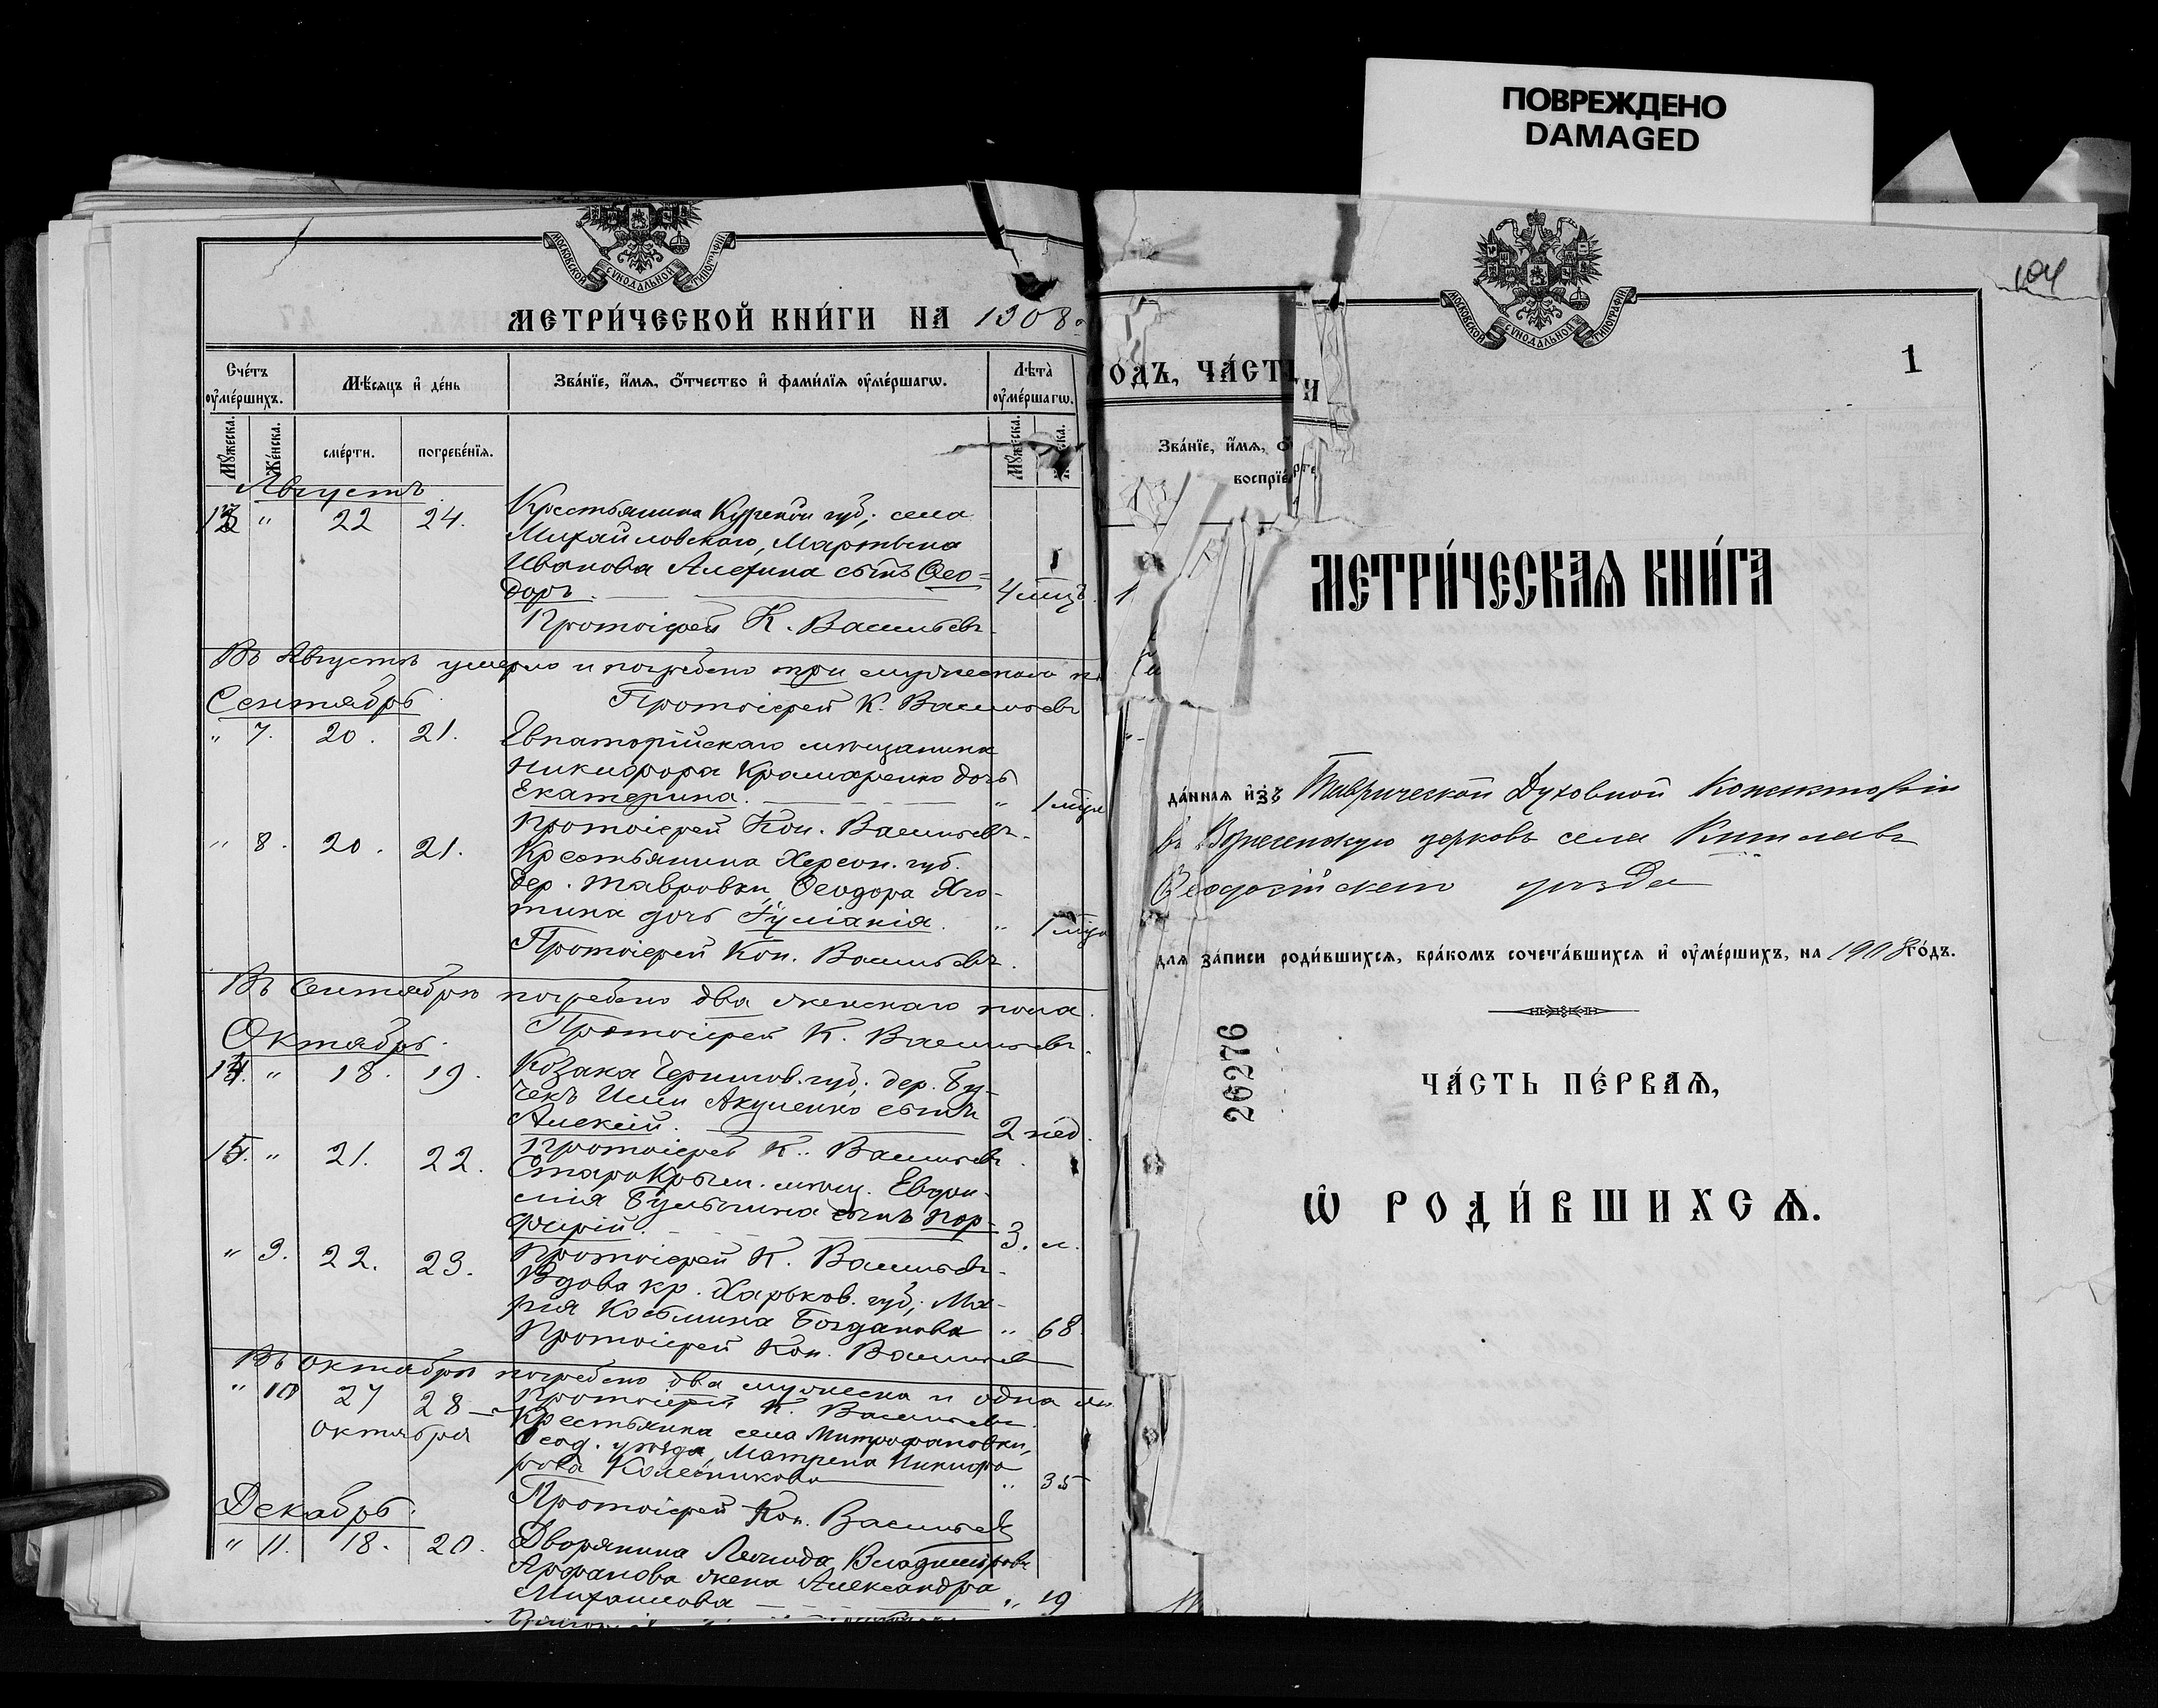 ПОВРЕЖДЕНО
DAMAGED
МОСКОВСКОЙ СУНОДАЛЬНОЙ ТИПОГРАФІИ
МЕТРИ́ЧЕСКОЙ КНИ́ГИ НА 1908
Сче́тъ ᲂу҆ме́ршихъ.
Мѣ́сяцъ и҆ де́нь
Зва́нїе, и҆́мѧ, ѻ҆́тчество и҆ фами́лїѧ ᲂу҆ме́ршагѡ.
Лѣ́та ᲂу҆ме́ршагѡ.
Мꙋ́жеска.
Же́нска.
сме́рти.
погребе́нїѧ.
Мꙋ́жеска.
Августъ
13 " 22 24. Крестьянина Курской губ; села
Михайловскаго, Мартына
Иванова сынъ Ѳео=
доръ. 4 мѣц.
Протоіерей К. Васильевъ.
Въ Августѣ умерло и погребено три мужескаго
Протоіерей К. Васильевъ
Сентябрь
" 7. 20. 21. Евпаторійскаго мѣщанина
Никифора Крамаренко дочь
Екатерина. " 1
Протоіерей Кон. Васильевъ.
" 8. 20. 21. Крестьянина Херсон. губ.
дер. Тавровки, Ѳеодора
дочь "  1
Протоіерей Кон. Васильевъ.
Въ Сентябрѣ погребено два женскаго пола.
Протоіерей К. Васильевъ.
Октябрь.
14. " 18. 19. Козака Чернигов. губ; дер.
Акуленко сынъ
Алексій. 2 нед.
Протоіерей К. Васильевъ.
15. " 21. 22. СтароКрым. мѣщ. Евдоки-
мія сынъ Пор-
фирій. 3. л.
Протоіерей К. Васильевъ.
" 9. 22. 23. Вдова кр. Харьков. губ; Ма-
рія Косьмина Богданова " 68.
Протоіерей Кон. Васильевъ
Въ Октябрѣ погребено два мужеска и одна
Протоіерей К. Васильевъ.
" 10 27 28 Крестьянка села Митрофановки,
октября Ѳеод. уѣзда, Матрена Никифо
рова Колесникова " 35
Протоіерей Кон. Васильев
Декабрь.
" 11. 18. 20. Дворянина Леонида Владимировъ
жена Александра
Михаилова " 19
ЧА́СТИ
Зва́нїе, и҆́мѧ,
МОСКОВСКОЙ СУНОДАЛЬНОЙ ТИПОГРАФІИ
104
1
МЕТРИ́ЧЕСКАѦ КНИ́ГА
да́ннаѧ и҆зъ Таврической Духовной Консисторіи
въ Вознесенскую церковь села
Ѳеодосійскаго уѣзда
длѧ за́писи роди́вшихсѧ, бра́комъ сочета́вшихсѧ и҆ ᲂу҆ме́ршихъ, на 1908 го́дъ.
26276
ЧА́СТЬ ПЕ́РВАѦ,
Ѡ҆ РОДИ́ВШИХСѦ.